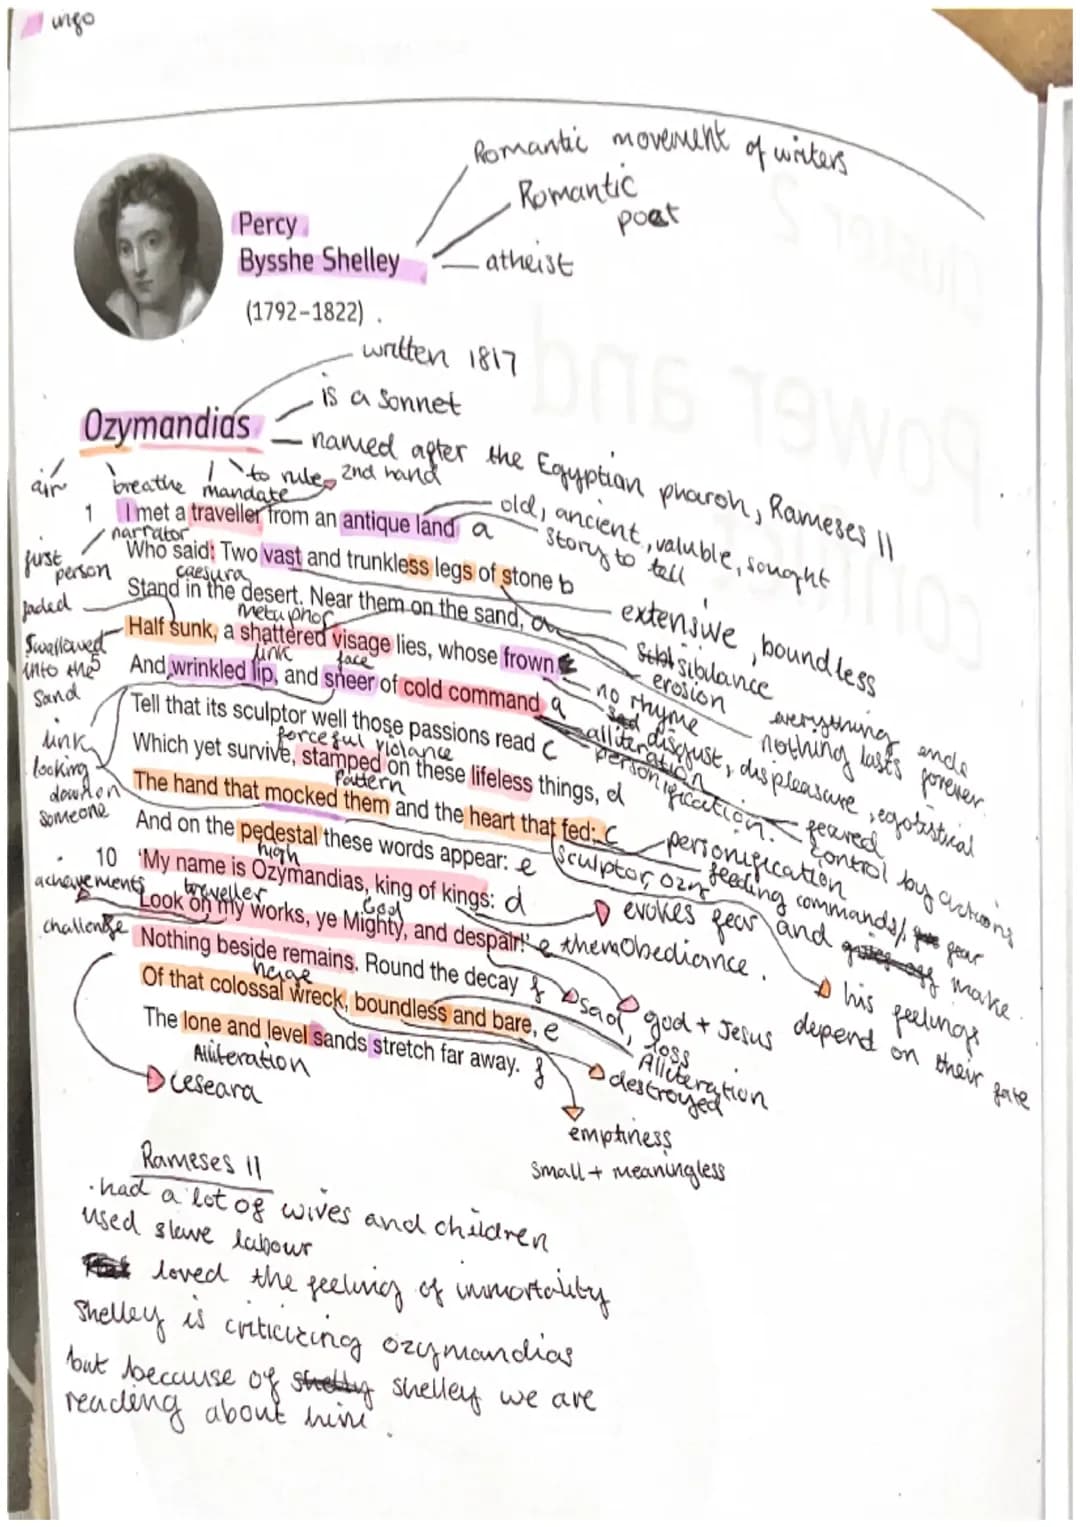 info
Romantic movement of writers
Romantic
poet
atheist
Percy
Bysshe Shelley
(1792–1822)
written 1817
is a sonnet
named after the Egyptian pharoh, Rameses II
Ozymandias
air
breathe
mandate
to rule
2nd hand
old, ancient, valuble, sought
story to tell
1 I met a traveller from an antique land a
narrator
first person
Who said: Two vast and trunkless legs of stone b
caesura
extensive, boundless
Stand in the desert. Near them on the sand, a
sibilance
erosion
everything ends
nothing lasts forever.
faded
metaphor
Half sunk, a shattered visage lies, whose frown
Swallowed into the sand
link
face
no rhyme
disgust, displeasure, egotistical
5 And wrinkled lip, and sneer of cold command a
alliteration
personification.
feared
control by actions
Tell that its sculptor well those passions read c
link
looking down on someone
forceful violance
Which yet survive, stamped on these lifeless things, d
Pattern
The hand that mocked them and the heart that fed; c
personification
feeding commands/ fear
sculptor, ozy
And on the pedestal these words appear: e
high
10 'My name is Ozymandias, king of kings: d
evokes fear and make
them obediance.
achievements
traveller
God
Look on my works, ye Mighty, and despair!' e
challenge
his feelings
depend on their fate
god + Jesus
Nothing beside remains. Round the decay f
sad, loss
huge
Of that colossal wreck, boundless and bare, e
Alliteration
destroyed
The lone and level sands stretch far away. f
Alliteration
ceseara
emptiness
small + meaningless
Rameses II
· had a lot of wives and children
used slave labour
loved the feeling of immortality
Shelley is criticizing ozymandias
but because of shelley we are
reading about him.